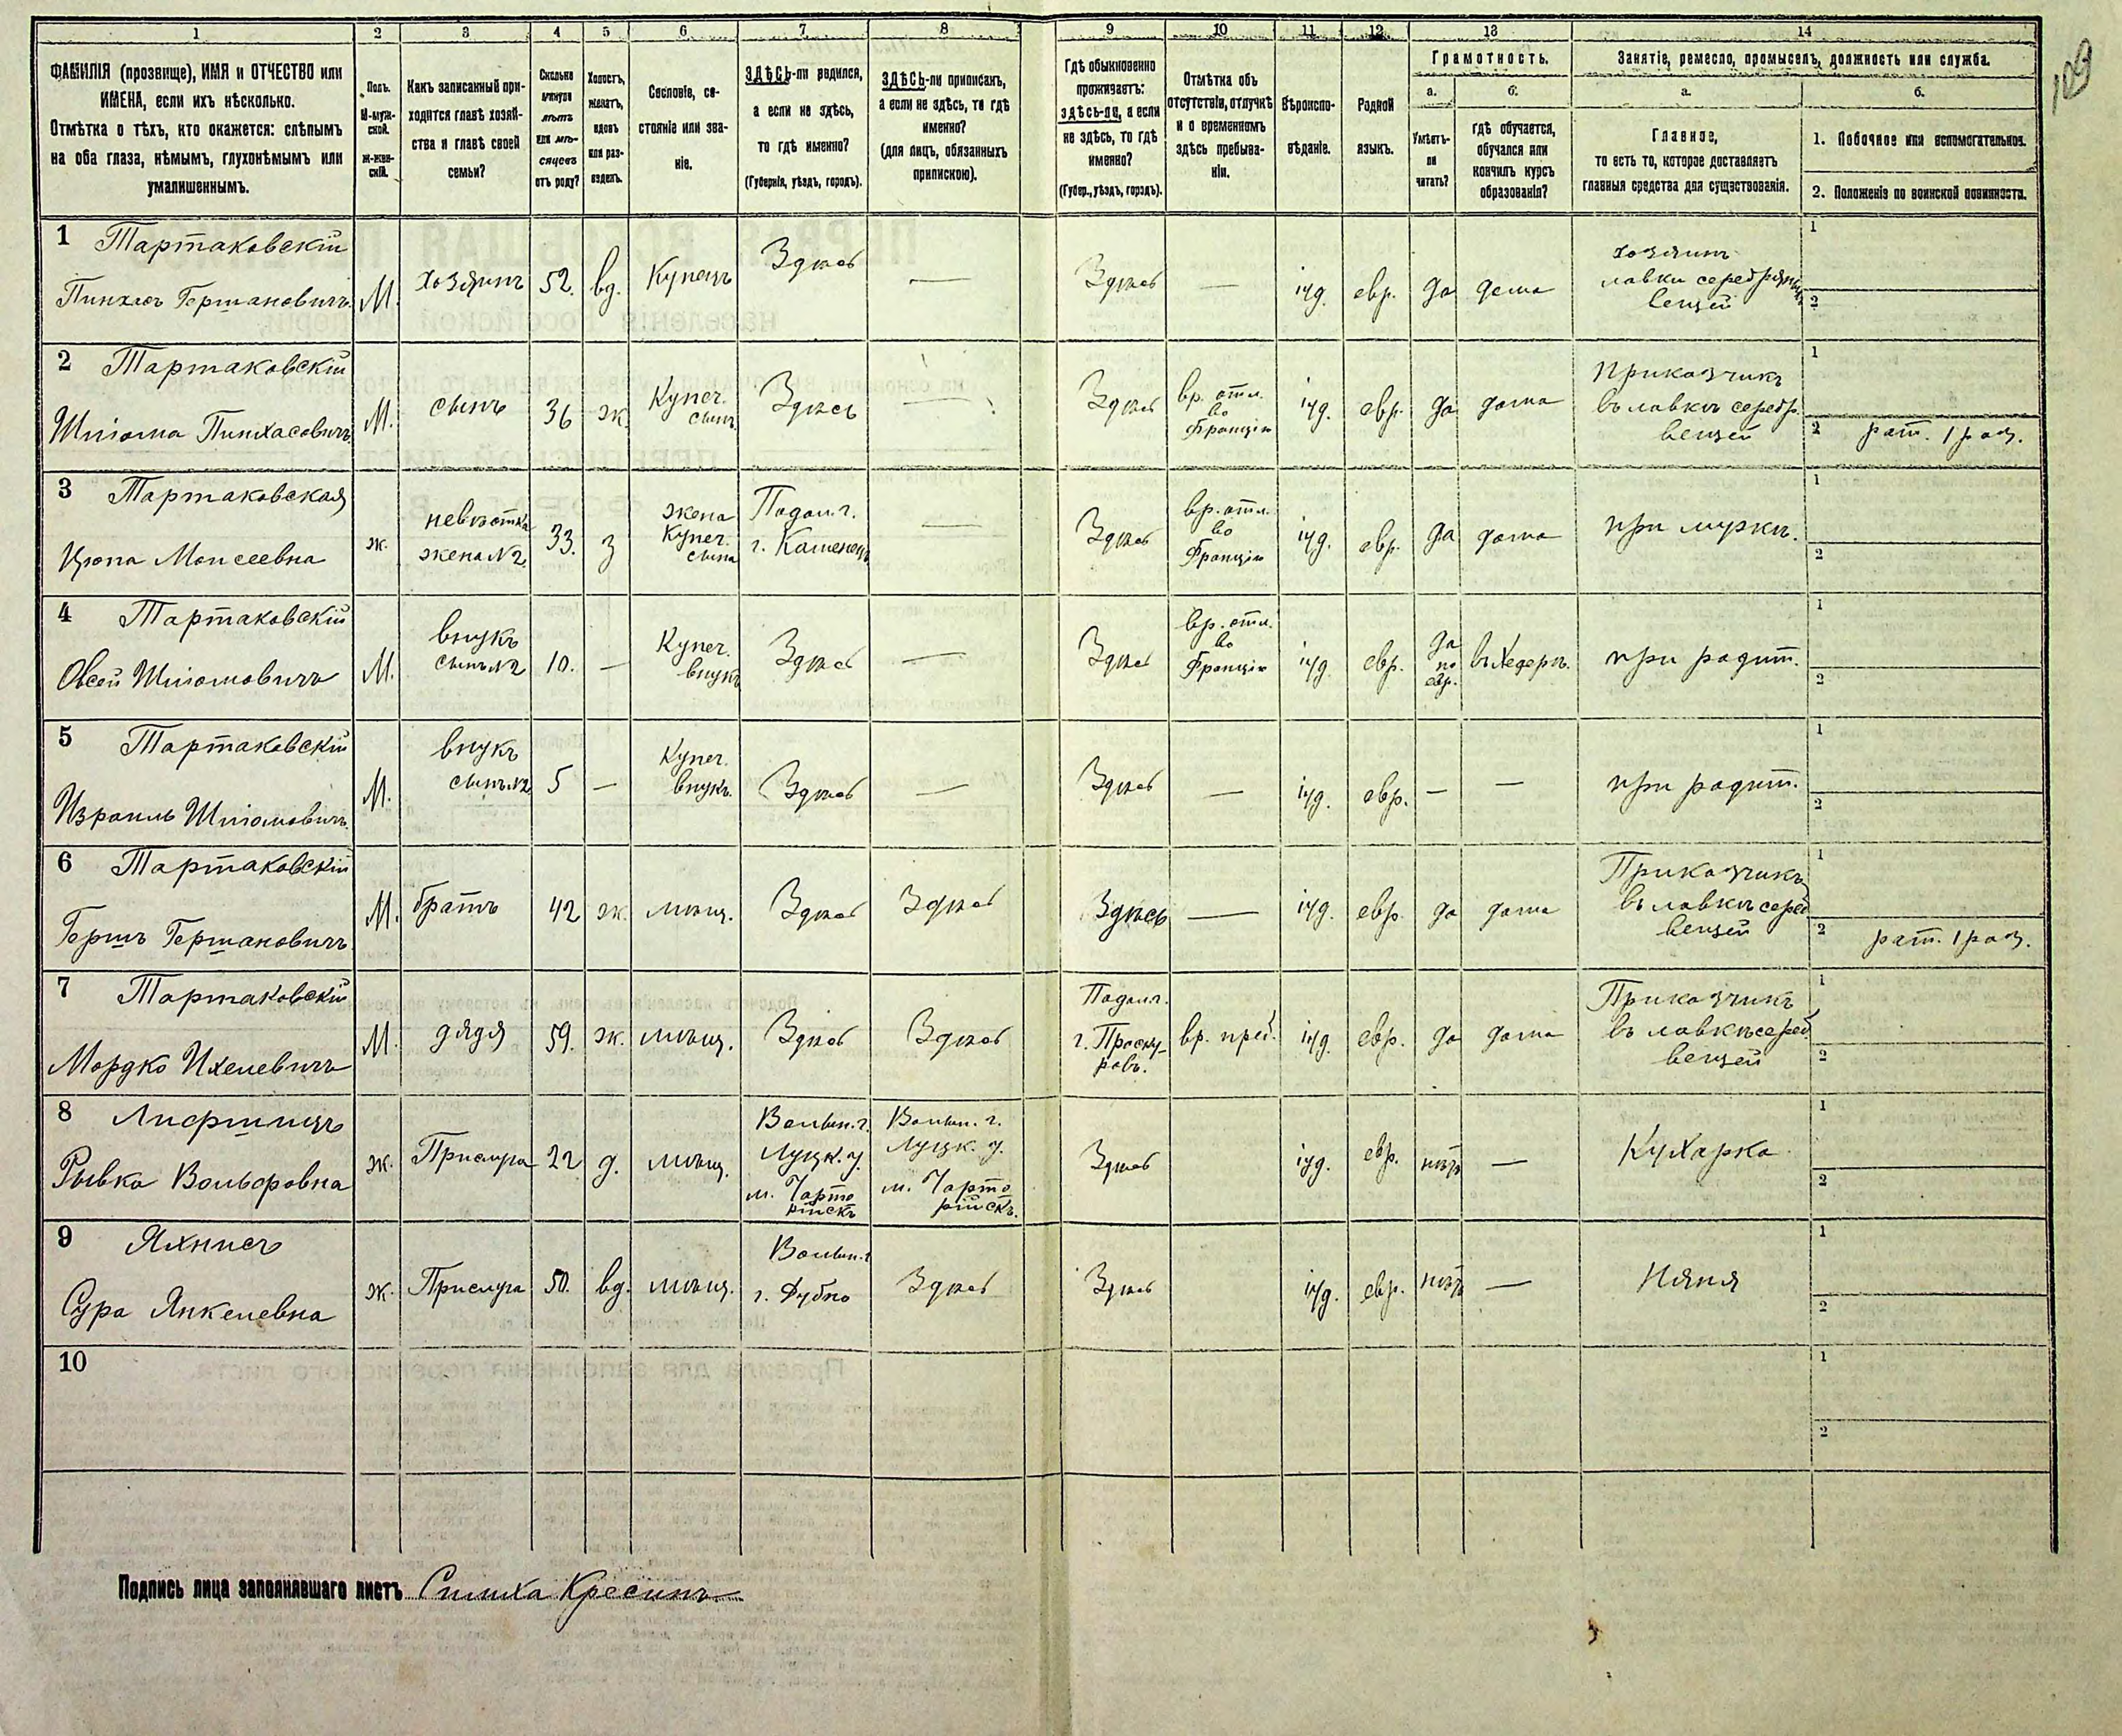 1 2 3 4 5 6 7 8 9 10 11 12 13 14
ФАМИЛІЯ (прозвище), ИМЯ и ОТЧЕСТВО или
ИМЕНА, если ихъ нѣсколько.
Отмѣтка о тѣхъ, кто окажется: слѣпымъ
на оба глаза, нѣмымъ, глухонѣмымъ или
умалишеннымъ.
Полъ.
М-муж-
ской.
ж-жен-
скій.
Какъ записанный при-
ходится главѣ хозяй-
ства и главѣ своей
семьи?
Сколько
минуло
лѣтъ
или мѣ-
сяцевъ
отъ роду?
Холостъ,
женатъ,
вдовъ
или раз-
веденъ.
Сословіе, со-
стояніе или зва-
ніе.
ЗДѢСЬ-ли родился,
а если не здѣсь,
то гдѣ именно?
(Губернія, уѣздъ, городъ).
ЗДѢСЬ-ли приписанъ,
а если не здѣсь, то гдѣ
именно?
(для лицъ, обязанныхъ
припискою).
Гдѣ обыкновенно
проживаетъ:
здѣсь-ли, а если
не здѣсь, то гдѣ
именно?
(Губер., уѣздъ, городъ).
Отмѣтка объ
отсутствіи, отлучкѣ
и о временномъ
здѣсь пребыва-
ніи.
Вѣроиспо-
вѣданіе.
Родной
языкъ.
Грамотность.
а.
Умѣетъ-
ли
читать?
б.
гдѣ обучается,
обучался или
кончилъ курсъ
образованія?
Занятіе, ремесло, промыселъ, должность или служба.
а.
Главное,
то есть то, которое доставляетъ
главныя средства для существованія.
б.
1. Побочное или вспомогательное.
2. Положеніе по воинской повинности.
109
1 Тартаковскій
Пинхасъ Гершановичъ
М.
хозяинъ
52.
вд.
Купецъ
Здѣсь
—
Здѣсь
—
іуд.
евр.
да
дома
хозяинъ
лавки серебряныхъ
вещей
1
2
2 Тартаковскій
Шліома Пинхасовичъ
М.
сынъ
36
ж.
Купеч.
сынъ
Здѣсь
—
Здѣсь
вр. отл.
во
Францію
іуд.
евр.
да
дома
Приказчикъ
въ лавкѣ серебр.
вещей
1
2 рат. 1 раз.
3 Тартаковская
Цюпа Моисеевна
ж.
невѣстка
жена №2
33.
з
жена
Купеч.
сына
Подол. г.
г. Каменецъ
—
Здѣсь
вр. отл.
во
Францію
іуд.
евр.
да
дома
при мужѣ.
1
2
4 Тартаковскій
Овсей Шліомовичъ
М.
внукъ
сынъ №2
10.
—
Купеч.
внукъ
Здѣсь
—
Здѣсь
вр. отл.
во
Францію
іуд
евр.
да
по
евр.
въ Хедерѣ.
при родит.
1
2
5 Тартаковскій
Израиль Шліомовичъ
М.
внукъ
сынъ №2
5
—
Купеч.
внукъ.
Здѣсь
—
Здѣсь
—
іуд.
евр.
—
—
при родит.
1
2
6 Тартаковскій
Гершъ Гершановичъ
М.
братъ
42
ж.
мѣщ.
Здѣсь
Здѣсь
Здѣсь
—
іуд.
евр.
да
дома
Приказчикъ
въ лавкѣ сереб
вещей
1
2 рат. 1 раз.
7 Тартаковскій
Мордко Ихелевичъ
М.
дядя
59.
ж.
мѣщ.
Здѣсь
Здѣсь
Подол. г.
г. Проску-
ровъ.
вр. преб.
іуд
евр.
да
дома
Приказчикъ
въ лавкѣ сереб
вещей
1
2
8 Лифшицъ
Рывка Вольфовна
ж.
Прислуга
22
д.
мѣщ.
Волын. г.
Луцк. у.
м. Чарто
рійскъ
Волын. г.
Луцк. у.
м. Чарто
рійскъ.
Здѣсь
іуд.
евр.
нѣтъ
—
Кухарка
1
2
9 Яхнисъ
Сура Янкелевна
ж.
Прислуга
50.
вд.
мѣщ.
Волын. г
г. Дубно
Здѣсь
Здѣсь
іуд.
евр.
нѣтъ
—
Няня
1
2
10
1
2
Подпись лица заполнявшаго листъ Симха Кресинъ